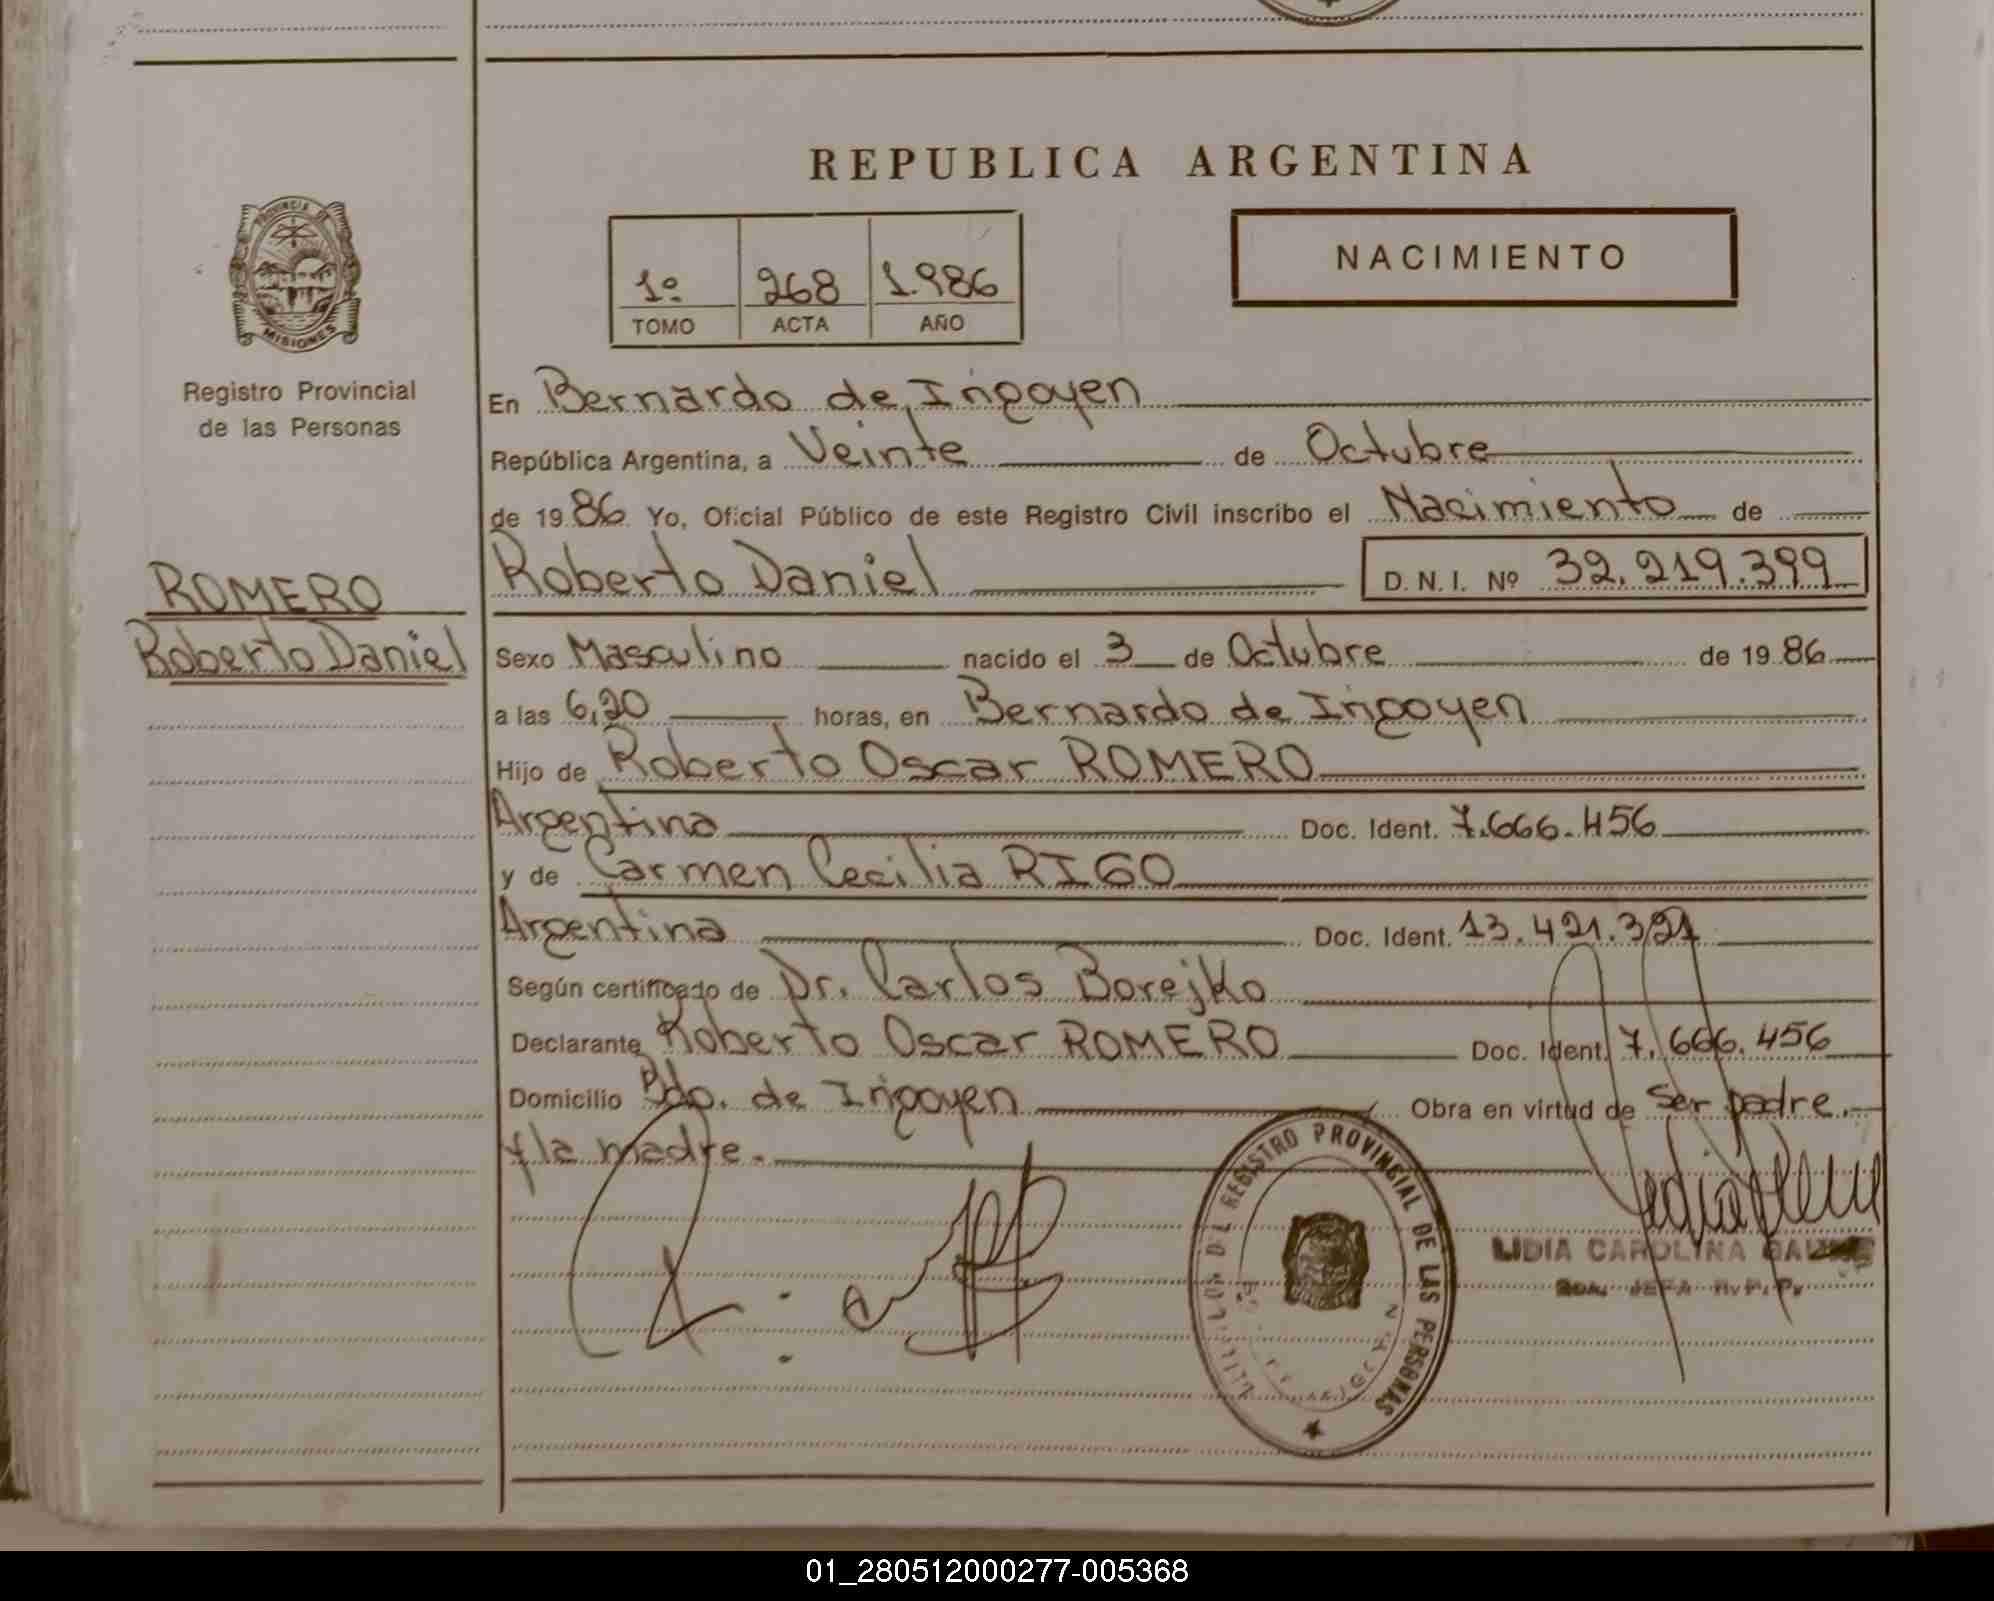 REPUBLICA ARGENTINA
NACIMIENTO
1º 268 1.986
TOMO ACTA AÑO
PROVINCIA DE
MISIONES
Registro Provincial
de las Personas
En Bernardo de Irigoyen
República Argentina, a Veinte de Octubre
de 1986 Yo, Oficial Público de este Registro Civil inscribo el Nacimiento de
ROMERO
Roberto Daniel
Roberto Daniel D.N.I. Nº 32.219.399
Sexo Masculino nacido el 3 de Octubre de 1986
a las 6,20 horas, en Bernardo de Irigoyen
Hijo de Roberto Oscar ROMERO
Argentina Doc. Ident. 7.666.456
y de Carmen Cecilia RIGO
Argentina Doc. Ident. 13.421.321
Según certificado de Dr. Carlos Borejko
Declarante Roberto Oscar ROMERO Doc. Ident. 7.666.456
Domicilio Bdo. de Irigoyen Obra en virtud de ser padre.
y la madre.
REGISTRO PROVINCIAL DE LAS PERSONAS
LIDIA CAROLINA
JEFA R.P.P.
01_280512000277-005368